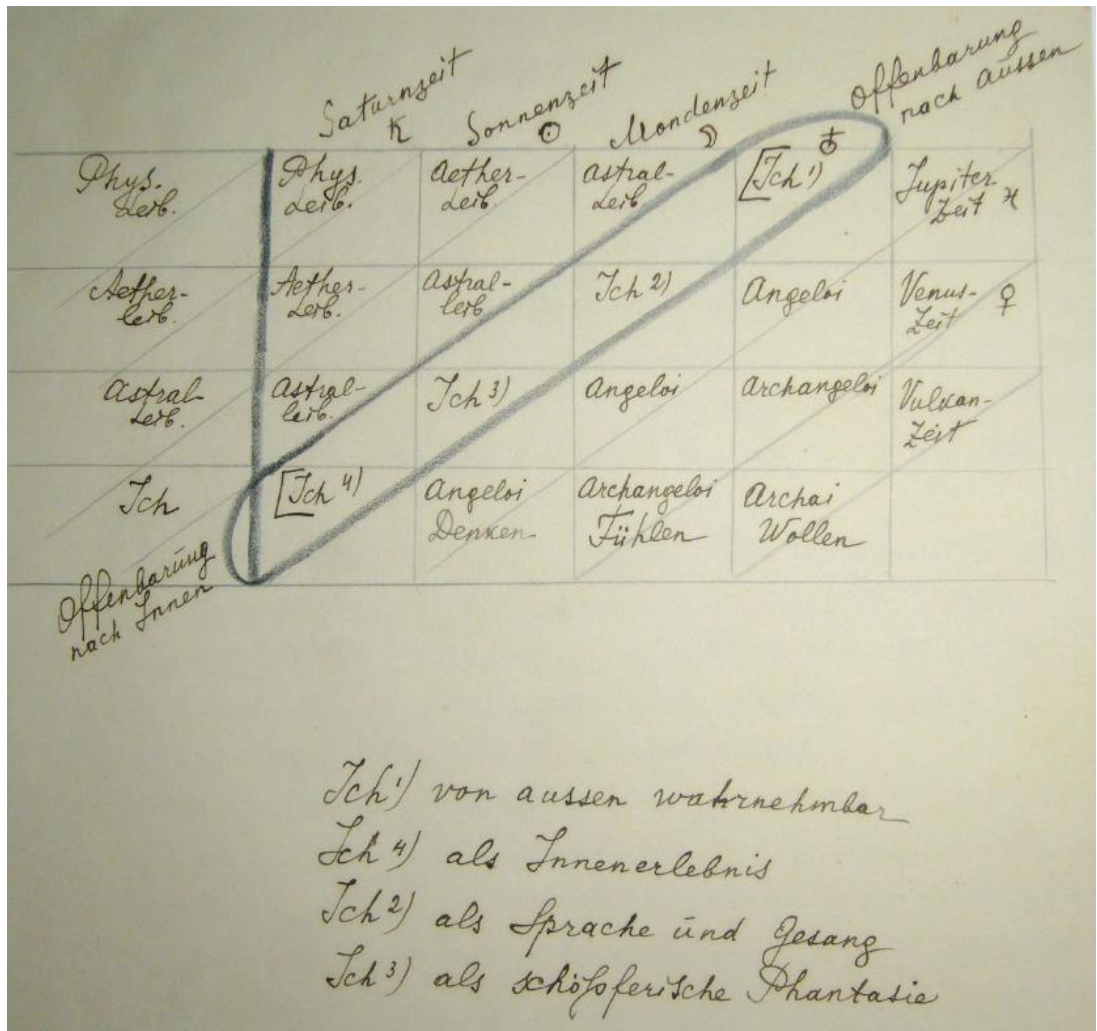 Saturnzeit
Sonnenzeit ☉
Mondenzeit ☽
Offenbarung
nach aussen
♁
Phys.
Leib.
Phys.
Leib.
Aether-
Leib.
astral-
Leib.
[Ich 1)
Jupiter
Zeit ♃
Aether-
leib.
Aether-
Leib.
astral-
leib
Ich 2)
Angeloi
Venus-
Zeit ♀
astral-
Leib.
Astral-
leib.
Ich 3)
Angeloi
Archangeloi
Vulkan-
Zeit
Ich
[Ich 4)
Angeloi
Denken
Archangeloi
Fühlen
Archai
Wollen
Offenbarung
nach Innen
Ich 1) von aussen wahrnehmbar
Ich 4) als Innenerlebnis
Ich 2) als Sprache und Gesang
Ich 3) als schöpferische Phantasie